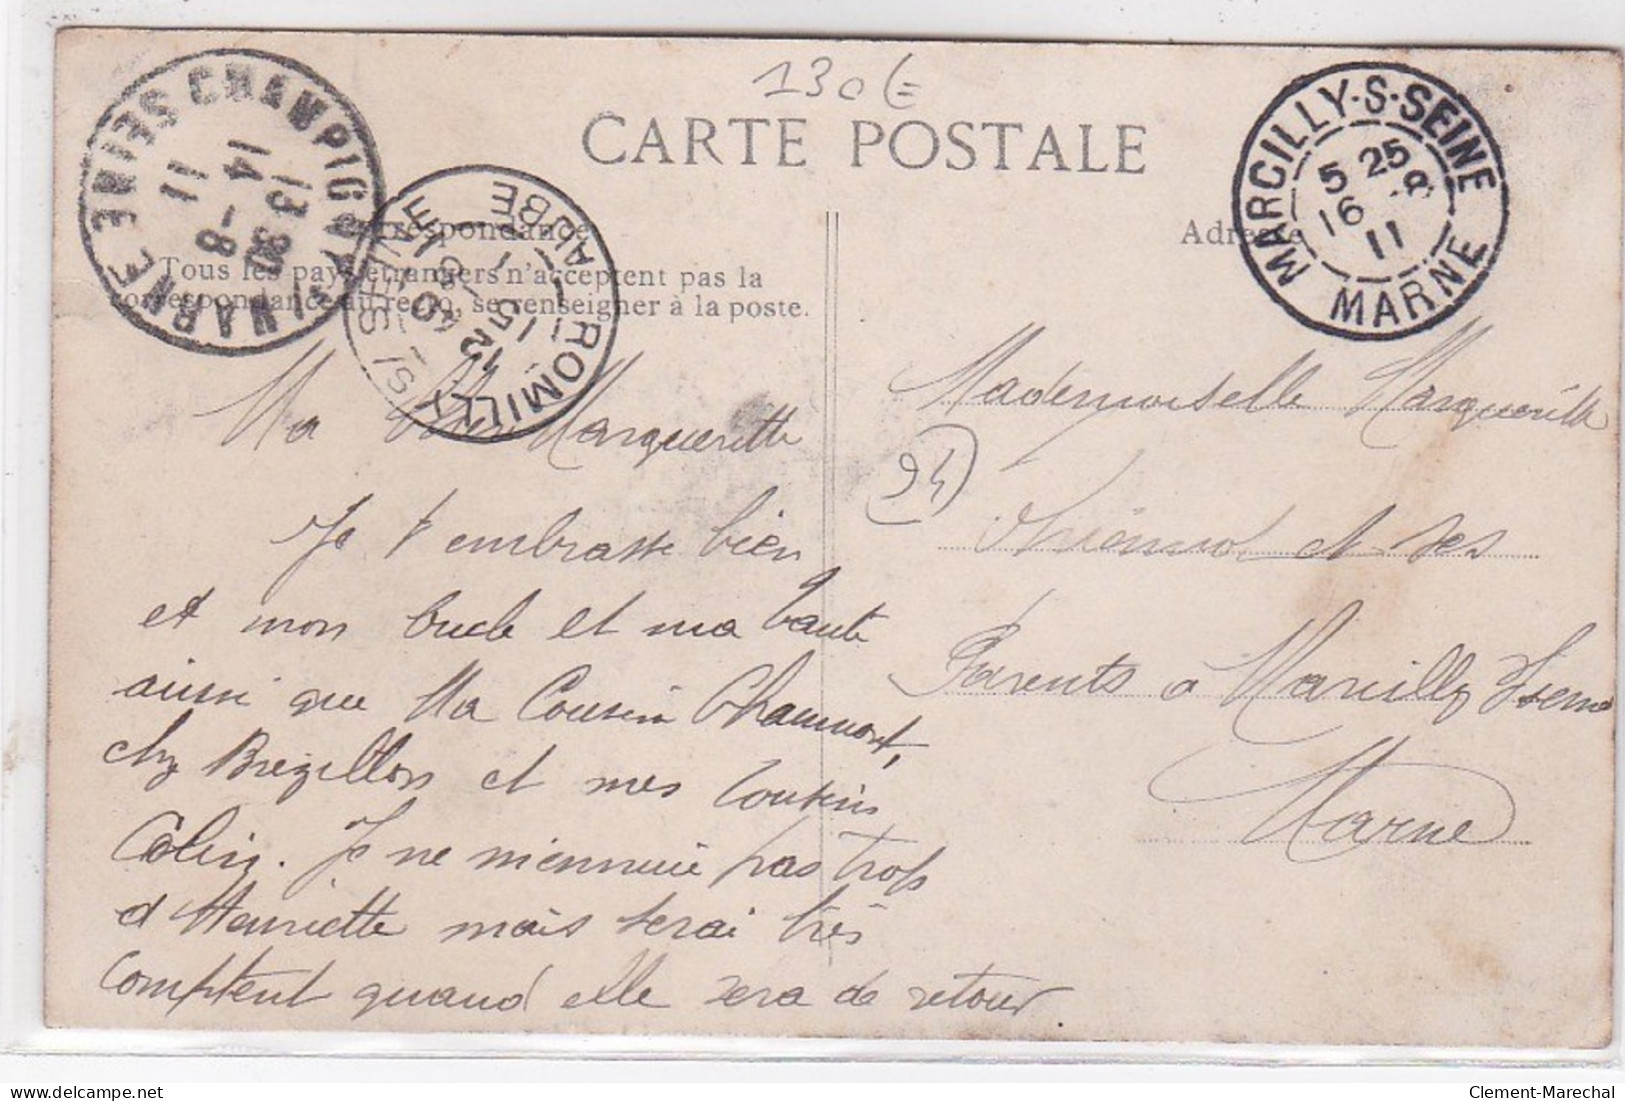 130 €
CARTE POSTALE
CHAMPIGNY S MARNE SEINE
13 30
14 - 8
11
ROMILLY S/ SEINE
AUBE
MARCILLY-S-SEINE
5 25
16 - 8
11
MARNE
Correspondance
Adresse
Tous les pays étrangers n'acceptent pas la
correspondance au recto, se renseigner à la poste.
Ma Margueritte
Je t'embrasse bien
et mon oncle et ma tante
aussi que Ma Cousine Chaumont,
chz Brezillon et mes Cousins
Colin. Je ne m'ennuie pas trop
d'Henriette mais serai très
comptent quand elle sera de retour.
(94)
Mademoiselle Margueritte
et ses
Parents à Marcilly s Seine
Marne
Clement-Marechal